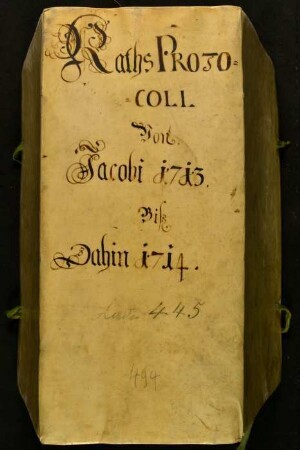 Raths PROTO=
COLL
Von
Jacobi 1713.
Biß
Dahin 1714.
445
494